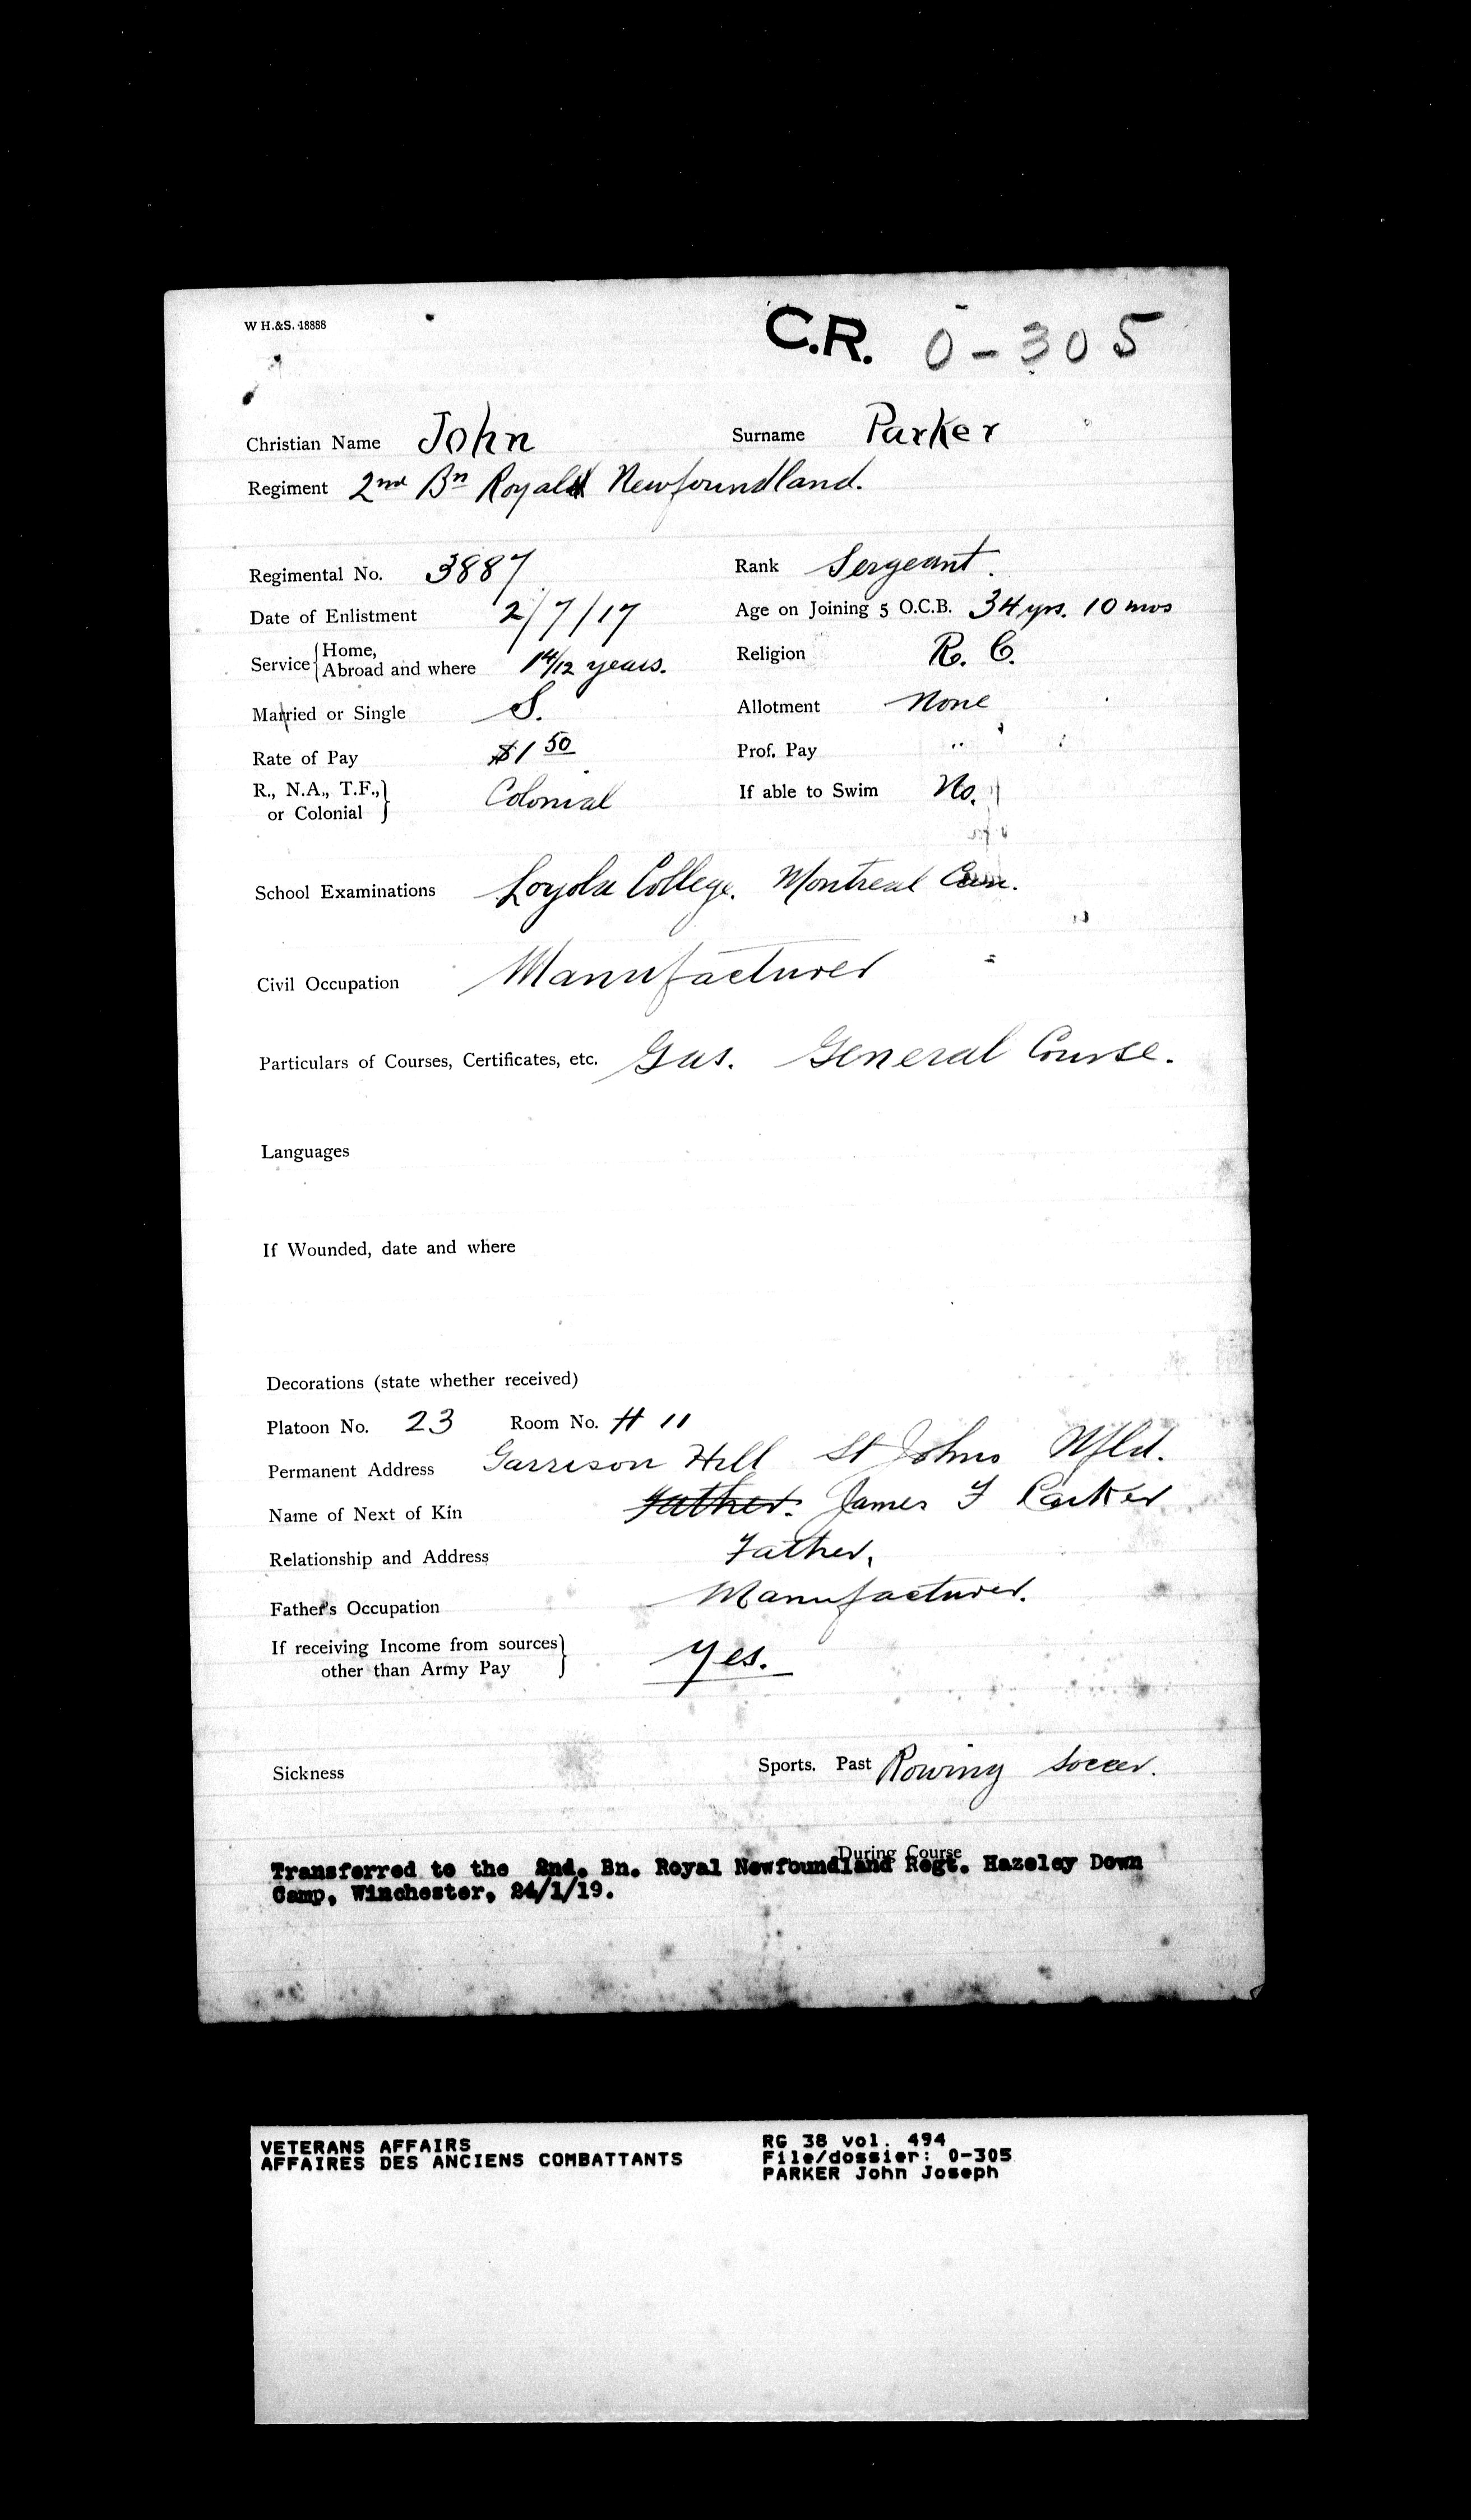 W H.&S. 18888
C.R. 0-305
Christian Name John Surname Parker
Regiment 2nd Bn Royal Newfoundland.
Regimental No. 3887 Rank Sergeant.
Date of Enlistment 2/7/17 Age on Joining 5 O.C.B. 34 yrs. 10 mos
Service { Home, Abroad and where 1 4/12 years. Religion R. C.
Married or Single S. Allotment None
Rate of Pay $1 50 Prof. Pay "
R., N.A., T.F., or Colonial } Colonial If able to Swim No.
School Examinations Loyola College. Montreal Can.
Civil Occupation Manufacturer
Particulars of Courses, Certificates, etc. Gas. General Course.
Languages
If Wounded, date and where
Decorations (state whether received)
Platoon No. 23 Room No. H 11
Permanent Address Garrison Hill St Johns Nfld.
Name of Next of Kin Father. James F Parker
Relationship and Address Father.
Father's Occupation Manufacturer.
If receiving Income from sources
other than Army Pay } Yes.
Sickness Sports. Past Rowing Soccer.
During Course
Transferred to the 2nd. Bn. Royal Newfoundland Regt. Hazeley Down
Camp, Winchester, 24/1/19.
VETERANS AFFAIRS RG 38 vol. 494
AFFAIRES DES ANCIENS COMBATTANTS File/dossier: 0-305
PARKER John Joseph